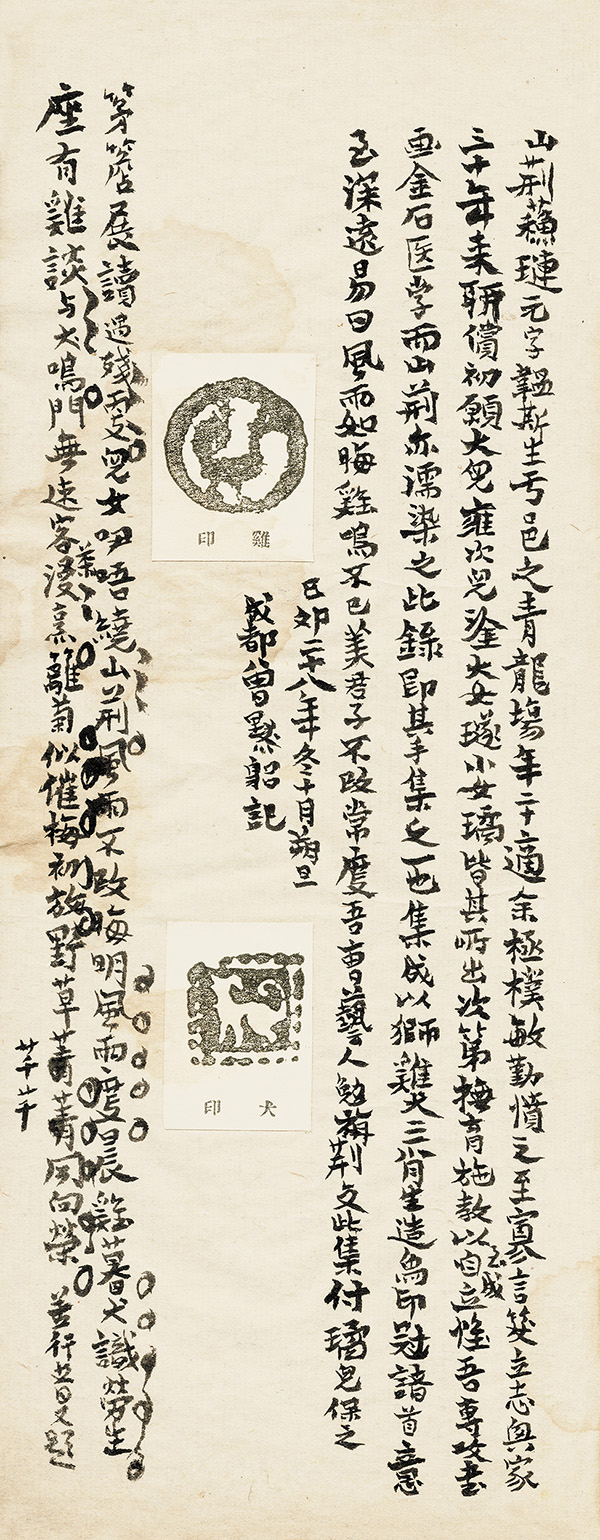 山荆蘓璉元字韞斯生亏邑之青龍場年二十適余極樸敏勤愼之至寡言笑立志與家
三十年来稍償初願大兒雍次兒淦大女璲小女璚皆其所出次第撫育施教以至成自立惟吾專攻書
画金石医学而山荆亦濡染之此錄即其手集之一也集成以獅雞犬三肖生造為印冠諸首意
至深遠易曰風雨如晦雞鳴不已美君子不改常度吾曹藝人勉旃荆文此集付璚兒保之
己卯二十八年冬十月朔旦
成都曾默躬記
雞印
犬印
茅簷展讀過殘更兒女咿唔繞山荆風雨不改晦明風雨度晨雞暮犬識勞生
座有雞談与犬鳴門無遠客漫烹籬菊似催梅初放野草菁菁同向榮